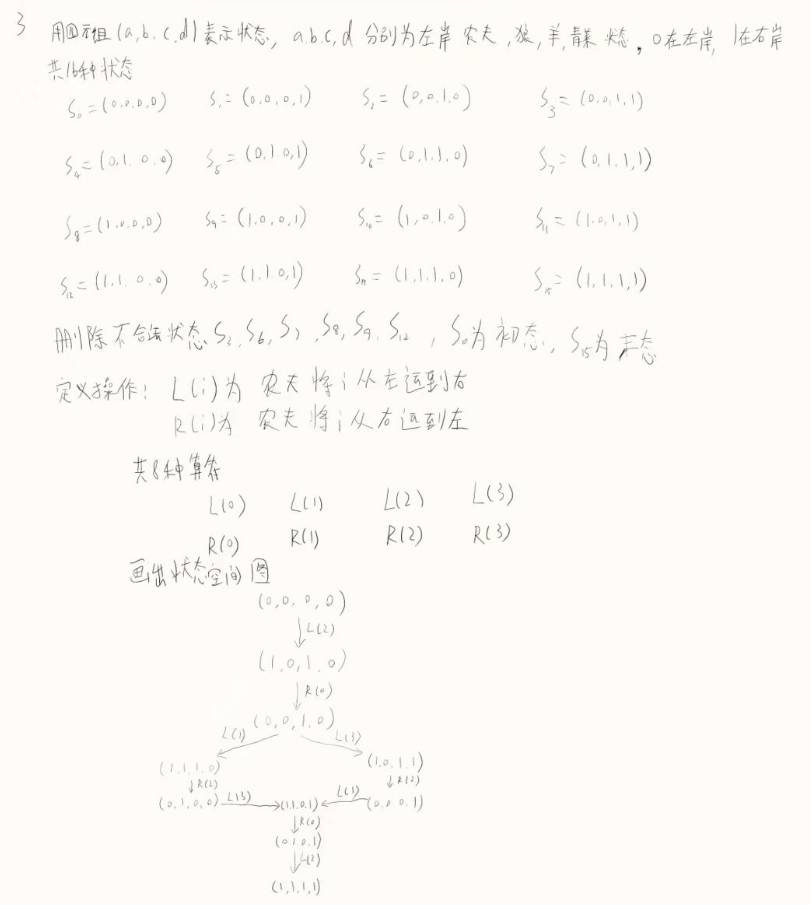 3 用四元组(a,b,c,d)表示状态, a.b.c,d 分别为左岸 农夫,狼,羊,青菜 状态,0在左岸,1在右岸
共16种状态
S₀=(0,0,0,0) S₁=(0,0,0,1) S₂=(0,0,1,0) S₃=(0,0,1,1)
S₄=(0,1,0,0) S₅=(0,1,0,1) S₆=(0,1,1,0) S₇=(0,1,1,1)
S₈=(1,0,0,0) S₉=(1,0,0,1) S₁₀=(1,0,1,0) S₁₁=(1,0,1,1)
S₁₂=(1,1,0,0) S₁₃=(1,1,0,1) (1,1,1,0) S₁₅=(1,1,1,1)
删除不合法状态 S₆, S₇, S₈, S₉, S₁₂, S₀为初态, S₁₅为 态
定义操作: L(i)为 农夫将i从左运到右
R(i)为 农夫将i从右运到左
共8种算符
L(0) L(1) L(2) L(3)
R(0) R(1) R(2) R(3)
画出状态空间图
(0,0,0,0)
↓L(2)
(1,0,1,0)
↓R(0)
(0,0,1,0)
L(1) L(3)
(1,1,1,0) (1,0,1,1)
↓R(2) ↓R(2)
(0,1,0,0) L(3) → (1,1,0,1) ← L(1) (0,0,0,1)
↓R(0)
(0,1,0,1)
↓L(2)
(1,1,1,1)